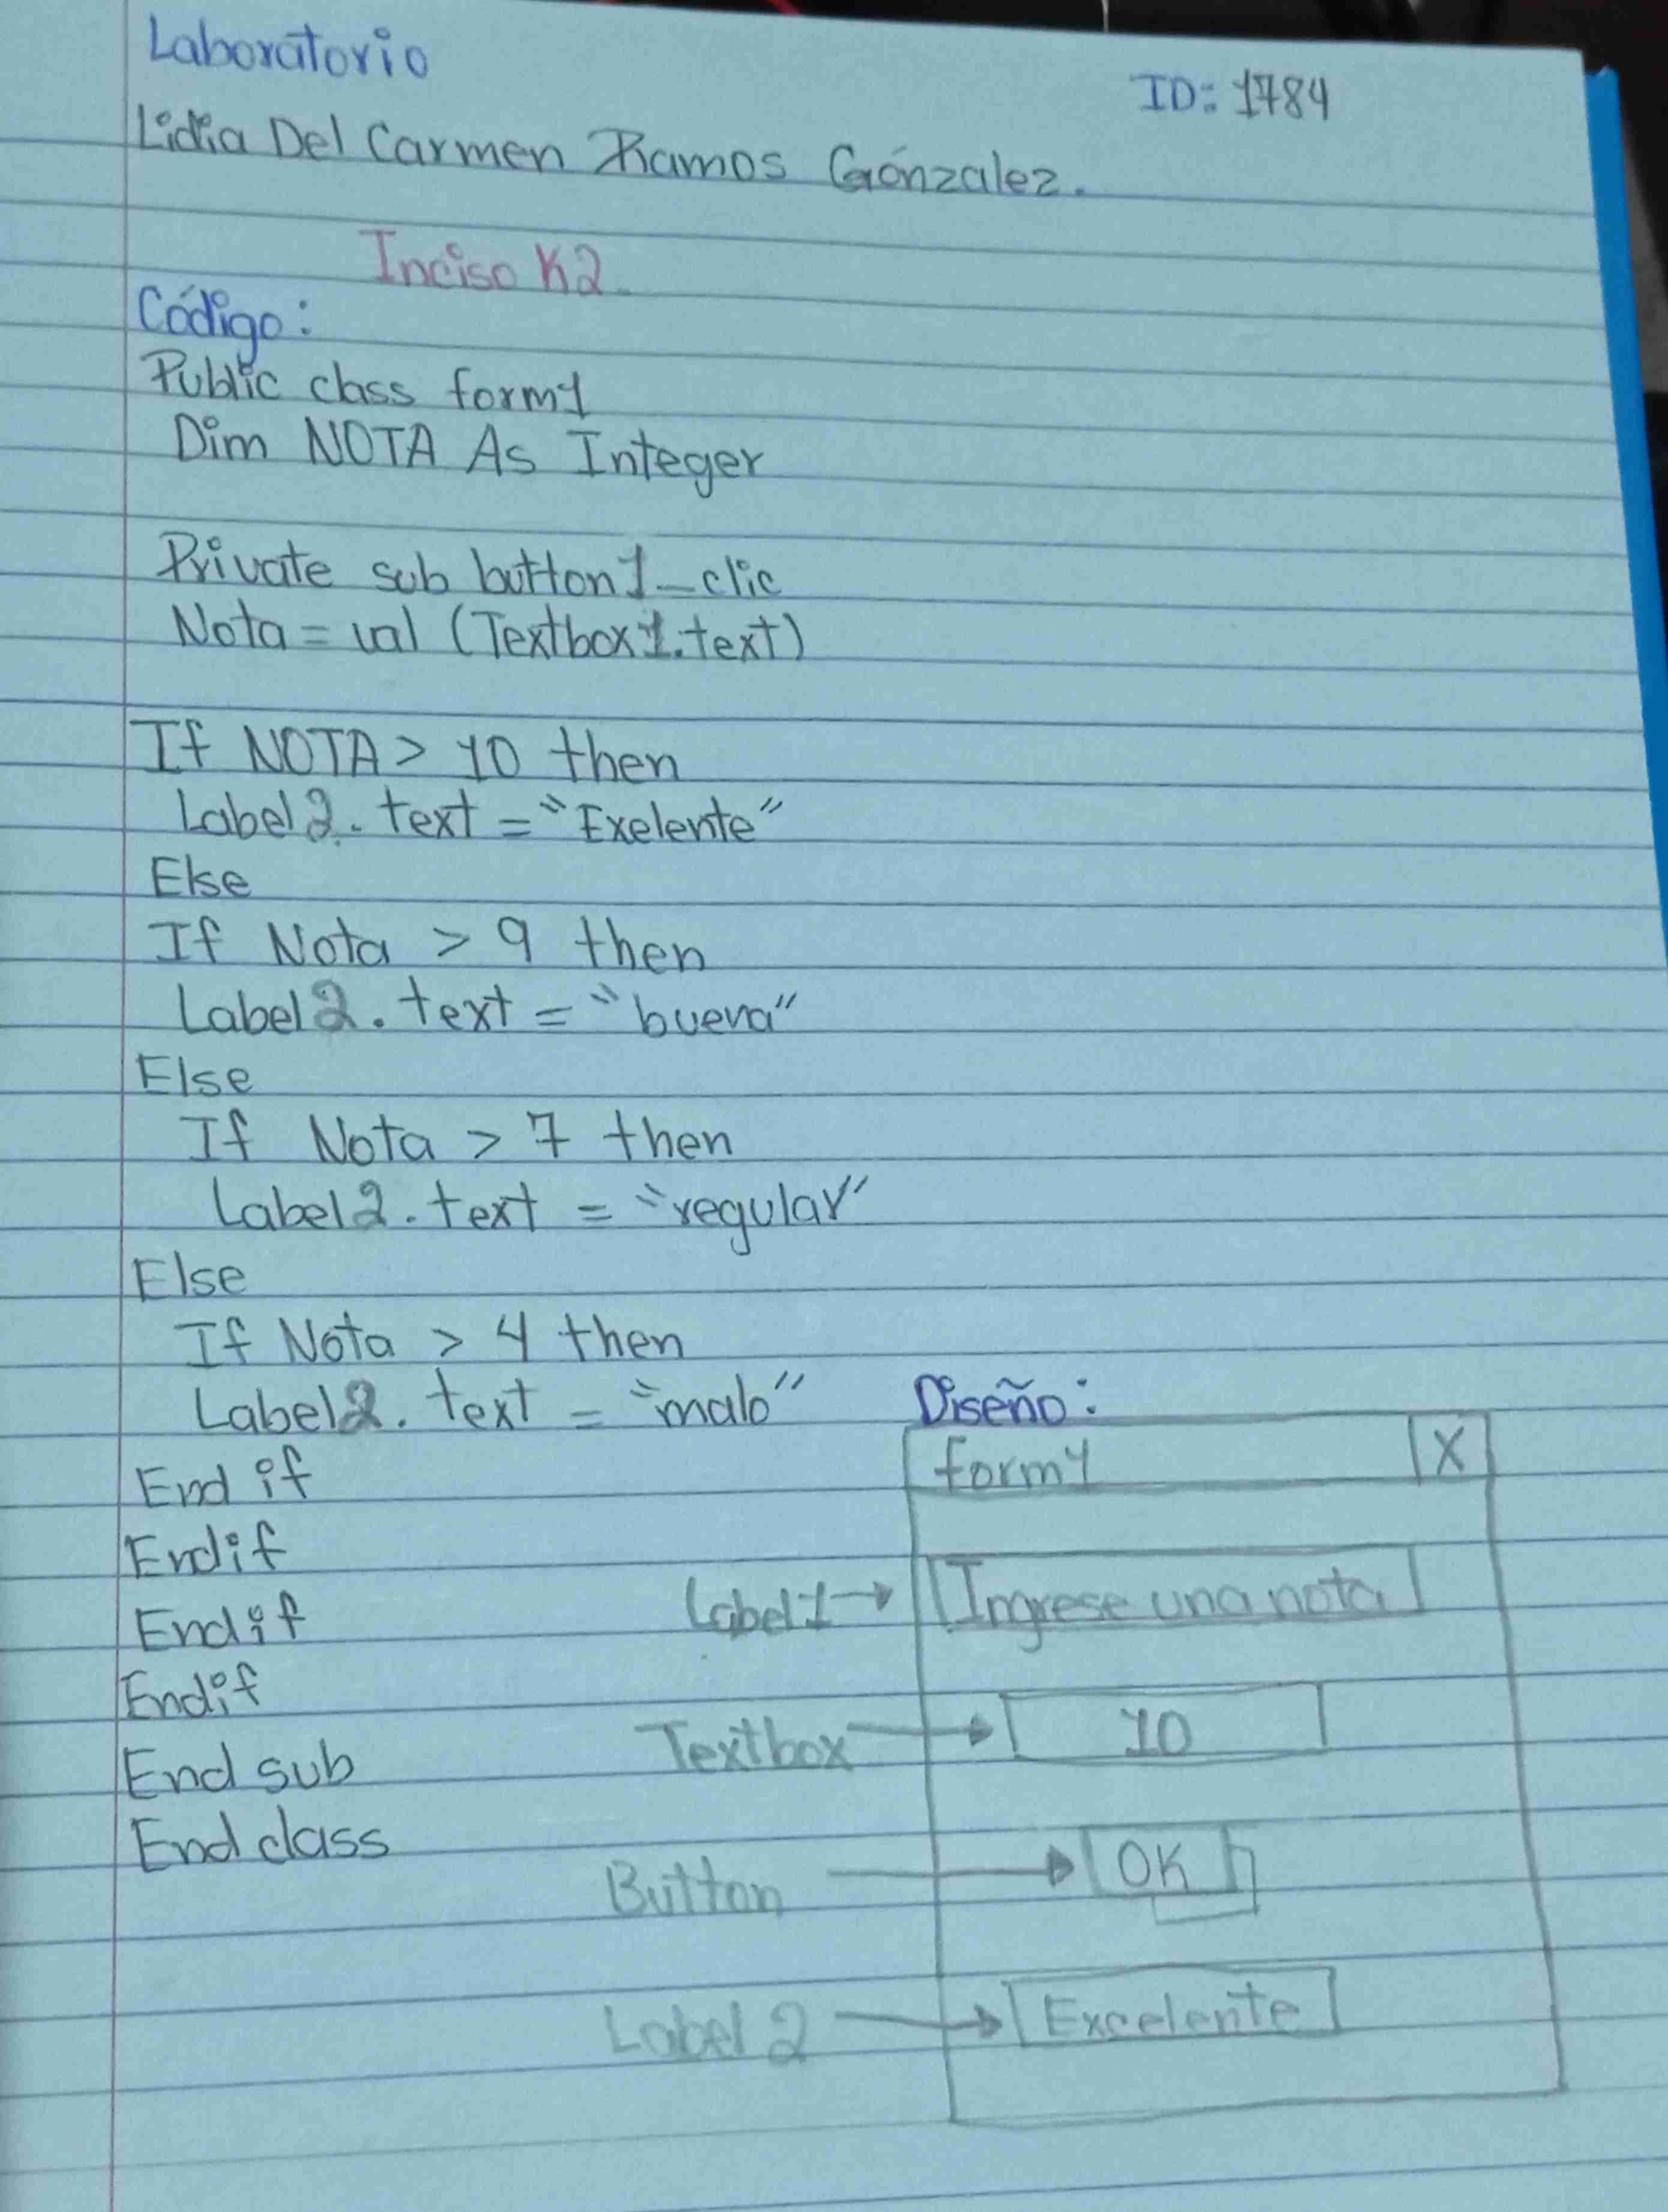 Laboratorio
ID: 1784
Lidia Del Carmen Ramos Gónzalez.
Inciso K2
Código:
Public class form1
Dim NOTA As Integer
Private sub button1_clic
Nota = val (Textbox1.text)
If NOTA > 10 then
Label2.text = "Exelente"
Else
If Nota > 9 then
Label2.text = "buena"
Else
If Nota > 7 then
Label2.text = "regular"
Else
If Nota > 4 then
Label2.text = "malo"
End if
Endif
Endif
Endif
End sub
End class
Diseño:
form1 X
Label1 → Ingrese una nota
Textbox → 10
Button → OK
Label 2 → Excelente